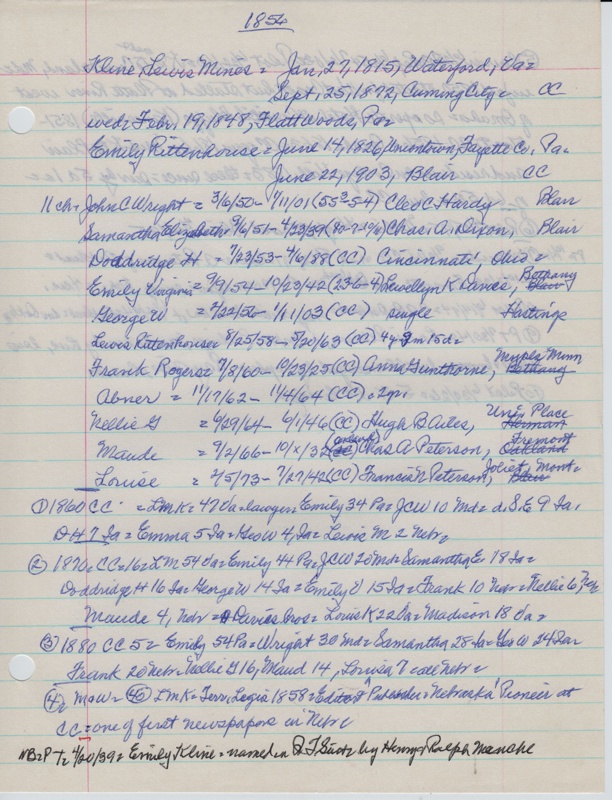 1854
Kline, Lewis Mines = Jan, 27, 1815, Waterford, Va =
Sept, 25, 1872, Cuming City = CC
wed = Febr, 19, 1848, Flatt Woods, Pa =
Emily Rittenhouse = June 14, 1826, Uniontown, Fayette Co, Pa =
June 22, 1903, Blair CC
11 ch = John C Wright = 3/6/50 - 1/11/01 Cleo C Hardy Blair
Samantha Elizabeth = 9/6/51 - 4/23/39 Chas, A, Dixon, Blair
Doddridge H = 7/23/53 - 4/6/88 (CC) Cincinnati, Ohio =
Emily Virginia = 9/9/54 - 10/23/42 Llewellyn K Davies, Bethany Blair
George W = 2/22/56 - 1/11/03 (CC) single Hastings
Lewis Rittenhouse = 8/25/58 - 5/20/63 (CC) 4y 9m 15d =
Frank Rogers = 7/8/60 - 10/23/25 (CC) Anna Gunthorne, Mpls Minn Bethany
Abner = 11/17/62 - 11/4/64 (CC) = 2 yr
Nellie G = 6/29/64 - 4/1/46 (CC) Hugh B Ailes, Union Place Herman
Maude = 9/2/66 - 10/x/32 (Oakland) (CC) Chas A Peterson, Fremont Oakland
Louise = 2/5/73 - 7/27/42 (CC) Francis N Peterson, Joliet, Mont = Blair
① 1860 CC = LMK = 47 Va = lawyer = Emily 34 Pa = JCW 10 Md = d. S. E 9 Ia,
DH 7 Ia = Emma 5 Ia = Geo W 4, Ia = Lewis M 2 Nebr =
② 1870 = CC = 16 = LM 54 Va = Emily 44 Pa = JCW 20 Md = Samantha E 18 Ia =
Doddridge H 16 Ia = George W 14 Ia = Emily V 15 Ia = Frank 10 Nebr = Nellie 6, Nebr
Maude 4, Nebr = Davies bros = Louis K 22 Va = Madison 18 Va =
③ 1880 CC 5 = Emily 54 Pa = Wright 30 Md = Samantha 28 Ia = Geo W 24 Ia =
Frank 20 Nebr = Nellie G 16, Maud 14, Louisa 7 all Nebr =
④ M&W = 46 LMK = Terr. Legis 1858 = Edited & Published = Nebraska Pioneer at
CC = one of first newspapers in Nebr =
NB = P T = 4/20/39 = Emily Kline = named in by Henry Ralph